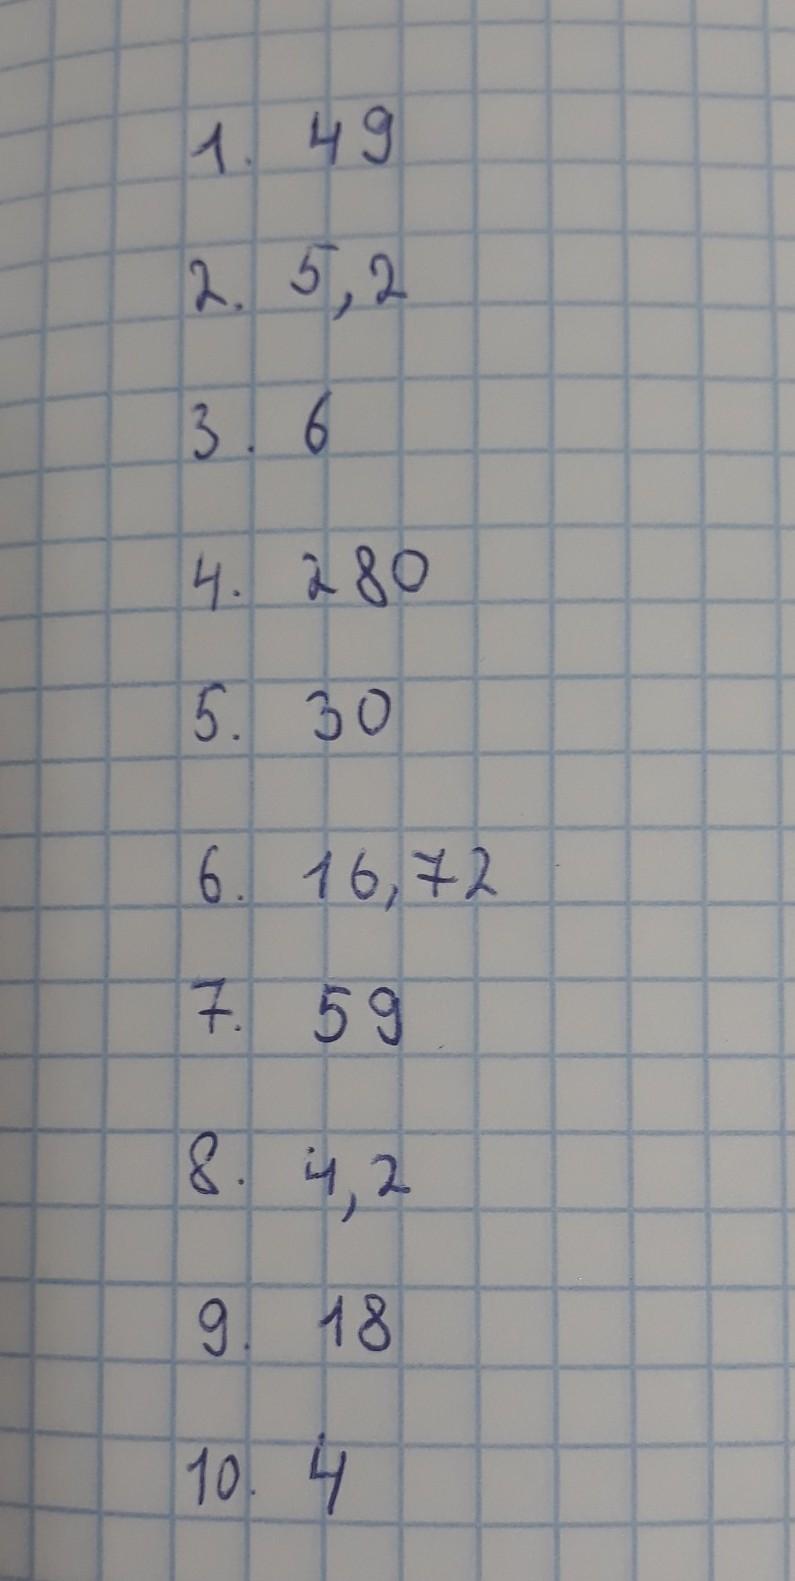 1. 49
2. 5,2
3. 6
4. 280
5. 30
6. 16,72
7. 59
8. 4,2
9. 18
10. 4